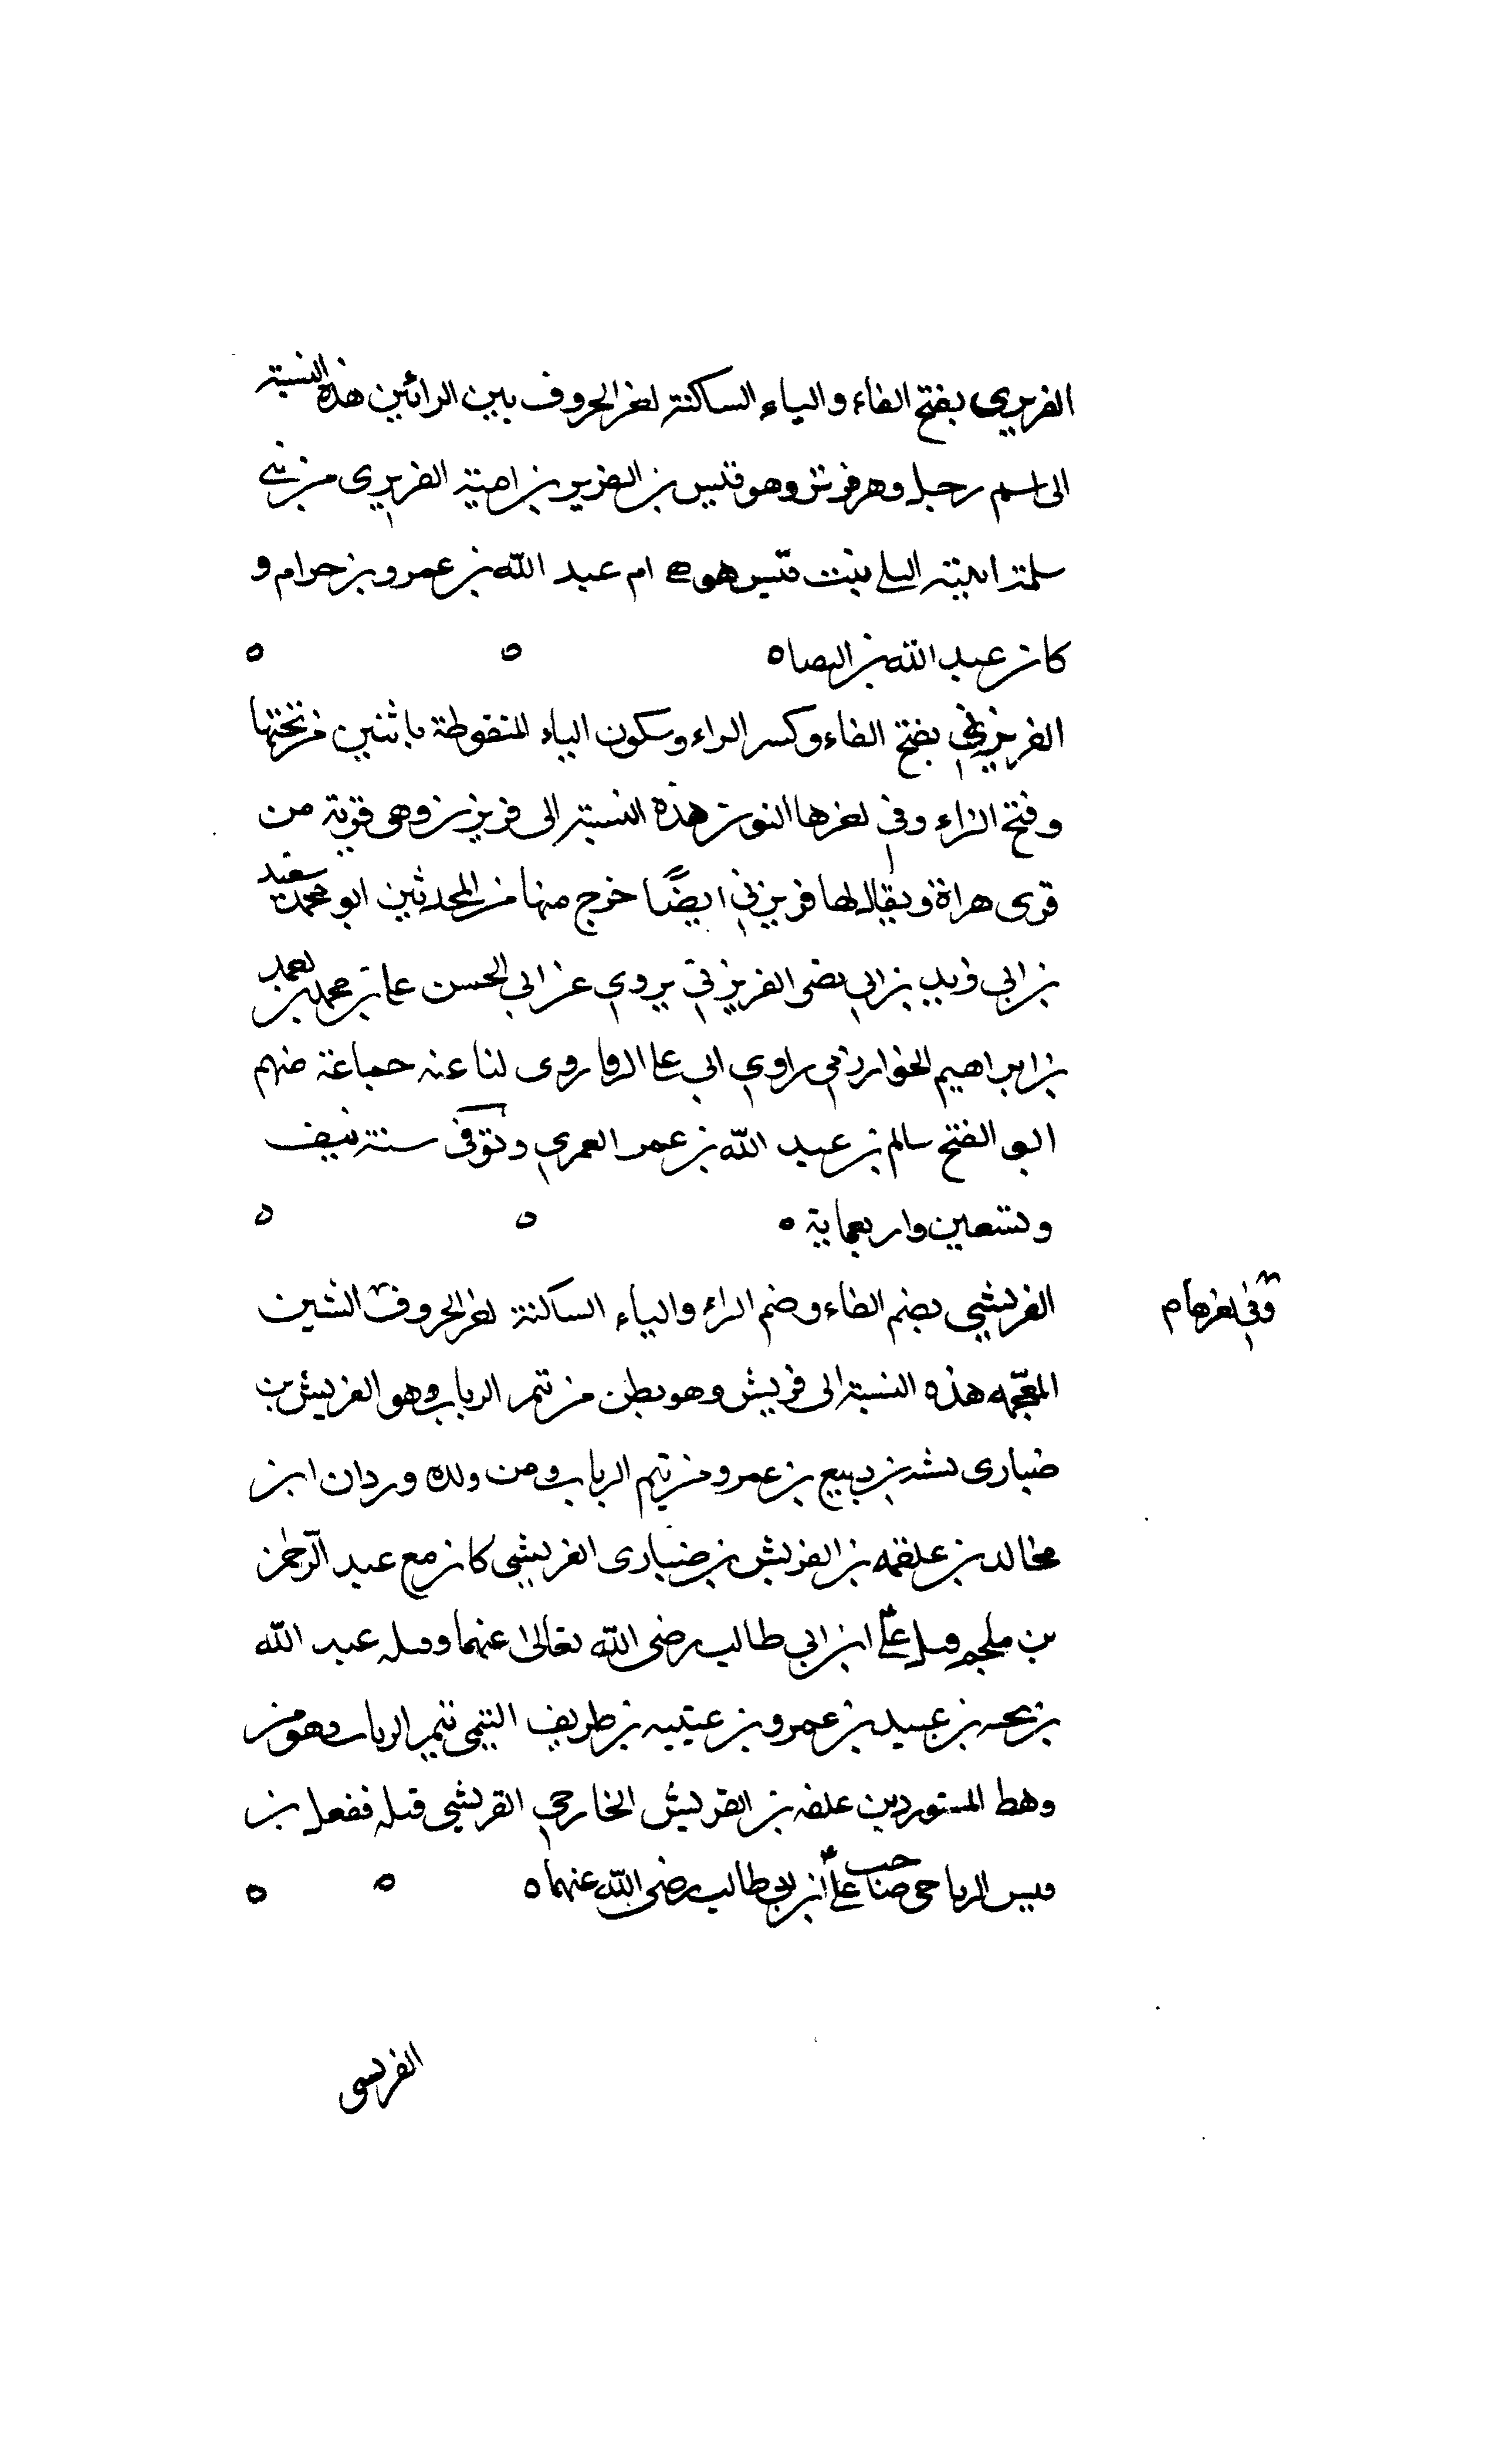 الفريري بفتح الفاء والياء الساكنة اخر الحروف بين الرائين هذه النسبة
الى اسم رجل وهر فرير وهو قيس بن الفرير بن امية الفريري من بني
سلمة ابنته بنت قيس هى ام عبد الله بن عمرو بن حرام و
كان عبد الله بن
الفريزني بفتح الفاء وكسر الراء وسكون الياء المنقوطة باثنين من تحتها
وفتح الزاء وفي اخرها النون هذه النسبة الى فريزن وهى قرية من
قرى هراة ويقال لها فريزني ايضًا خرج منها من المحدثين ابو محمد سعيد
بن ابي زيد بن ابي نضى الفريزني يروي عن ابي الحسن علي بن محمد بن
بن ابراهيم الخوارزمي راوي ابي علي الرفا روى لنا عنه جماعة منهم
ابو الفتح سالم بن عبد الله بن عمر العمري وتوفى سنة نيف
وتسعين واربعماية
الفريشي بضم الفاء وضم الراء والياء الساكنة اخر الحروف الشين
وفي اخرها م
المعجمه هذه النسبة الى فريش وهو بطن من تيم الرباب وهو الفريش بن
ضبارى بن ربيع بن عمرو من تيم الرباب ومن ولده وردان ابن
مخالد بن علقمه بن الفريش بن ضبارى الفريشي كان مع عبد الرحمن
بن ملجم قتل علي ابن ابي طالب رضى الله تعالى عنهما وقتله عبد الله
بن نجبه بن عبيد بن عمرو بن عتيبه بن طريف التيمي تيم الرباب وهو من
وهط المستورد بن علفه بن القريش الخارجي القريشي قتله ففعل بن
قيس الرياحى صاحب علي ابن ابي طالب رضى الله عنهما
الفرسى